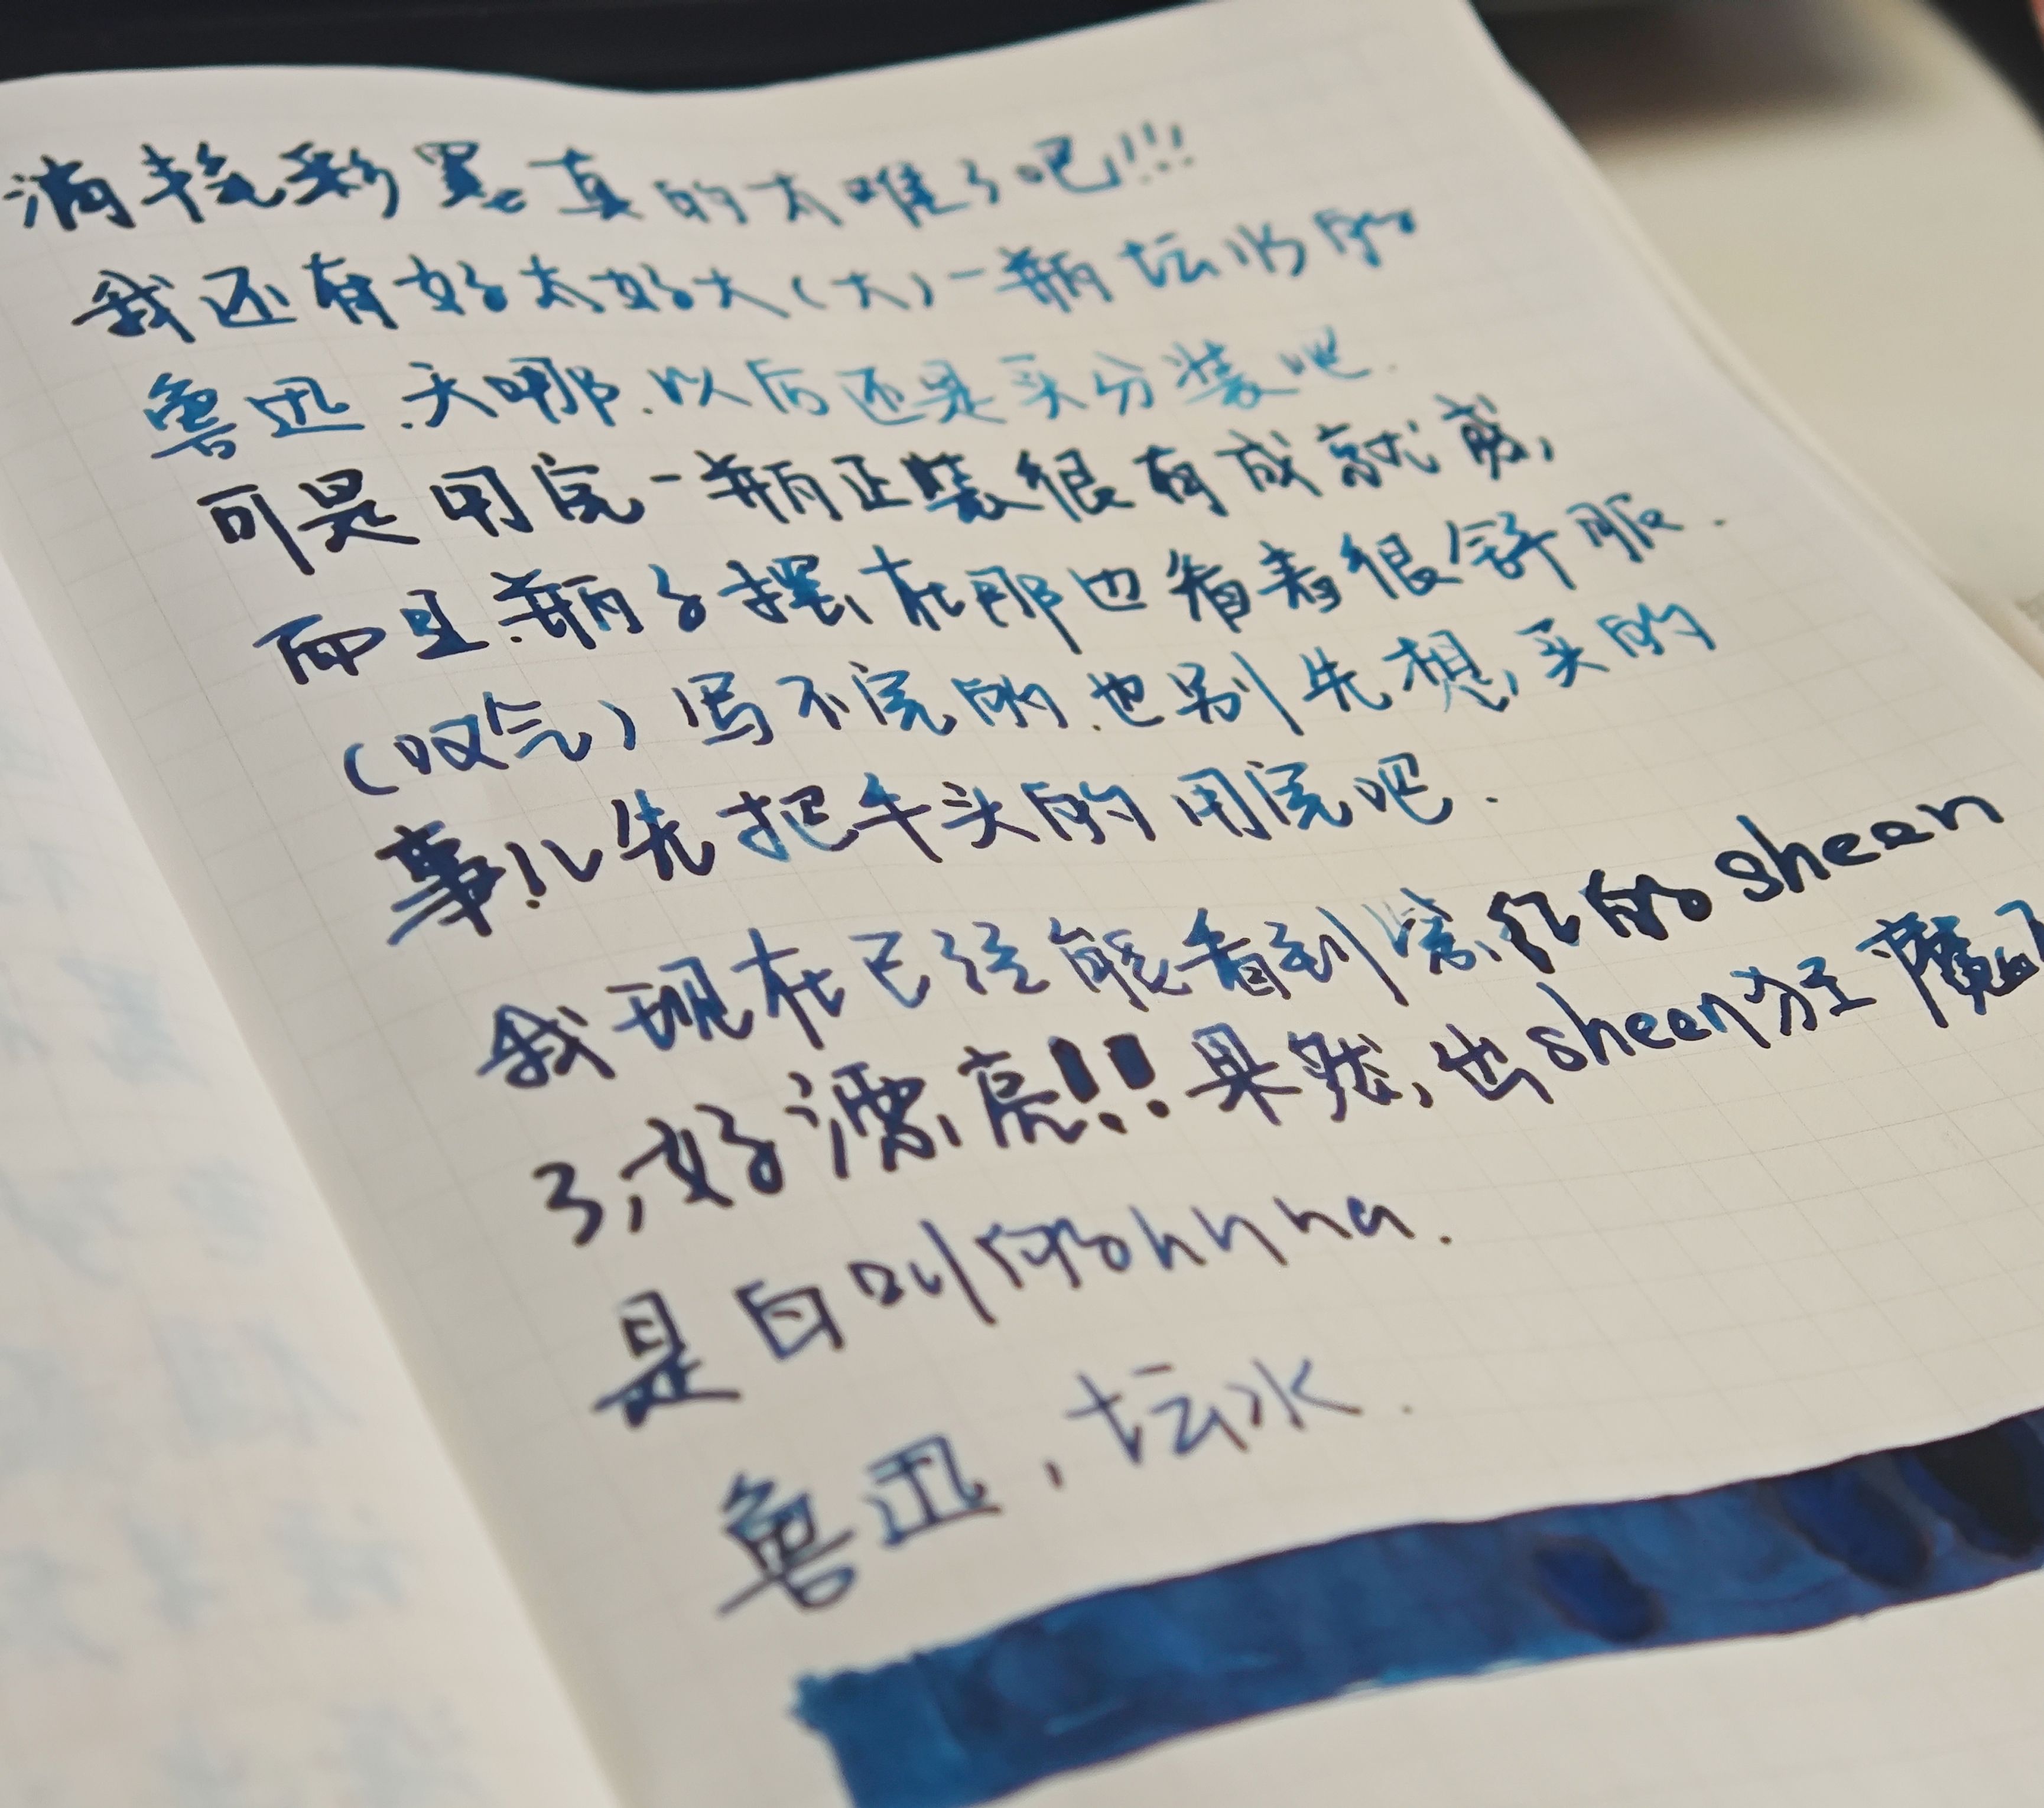 消耗彩墨真的太难了吧!!!
我还有好大好大(大)一瓶坛水的
鲁迅.天哪.以后还是买分装吧.
可是用完一瓶正装很有成就感,
而且瓶子摆在那也看着很舒服.
(叹气)写不完的.也别先想,买的
事儿先把手头的用完吧.
我现在已经能看到紫红的sheen
了,好漂亮!!果然,出sheen狂魔
是白叫的hhhha.
鲁迅,坛水.